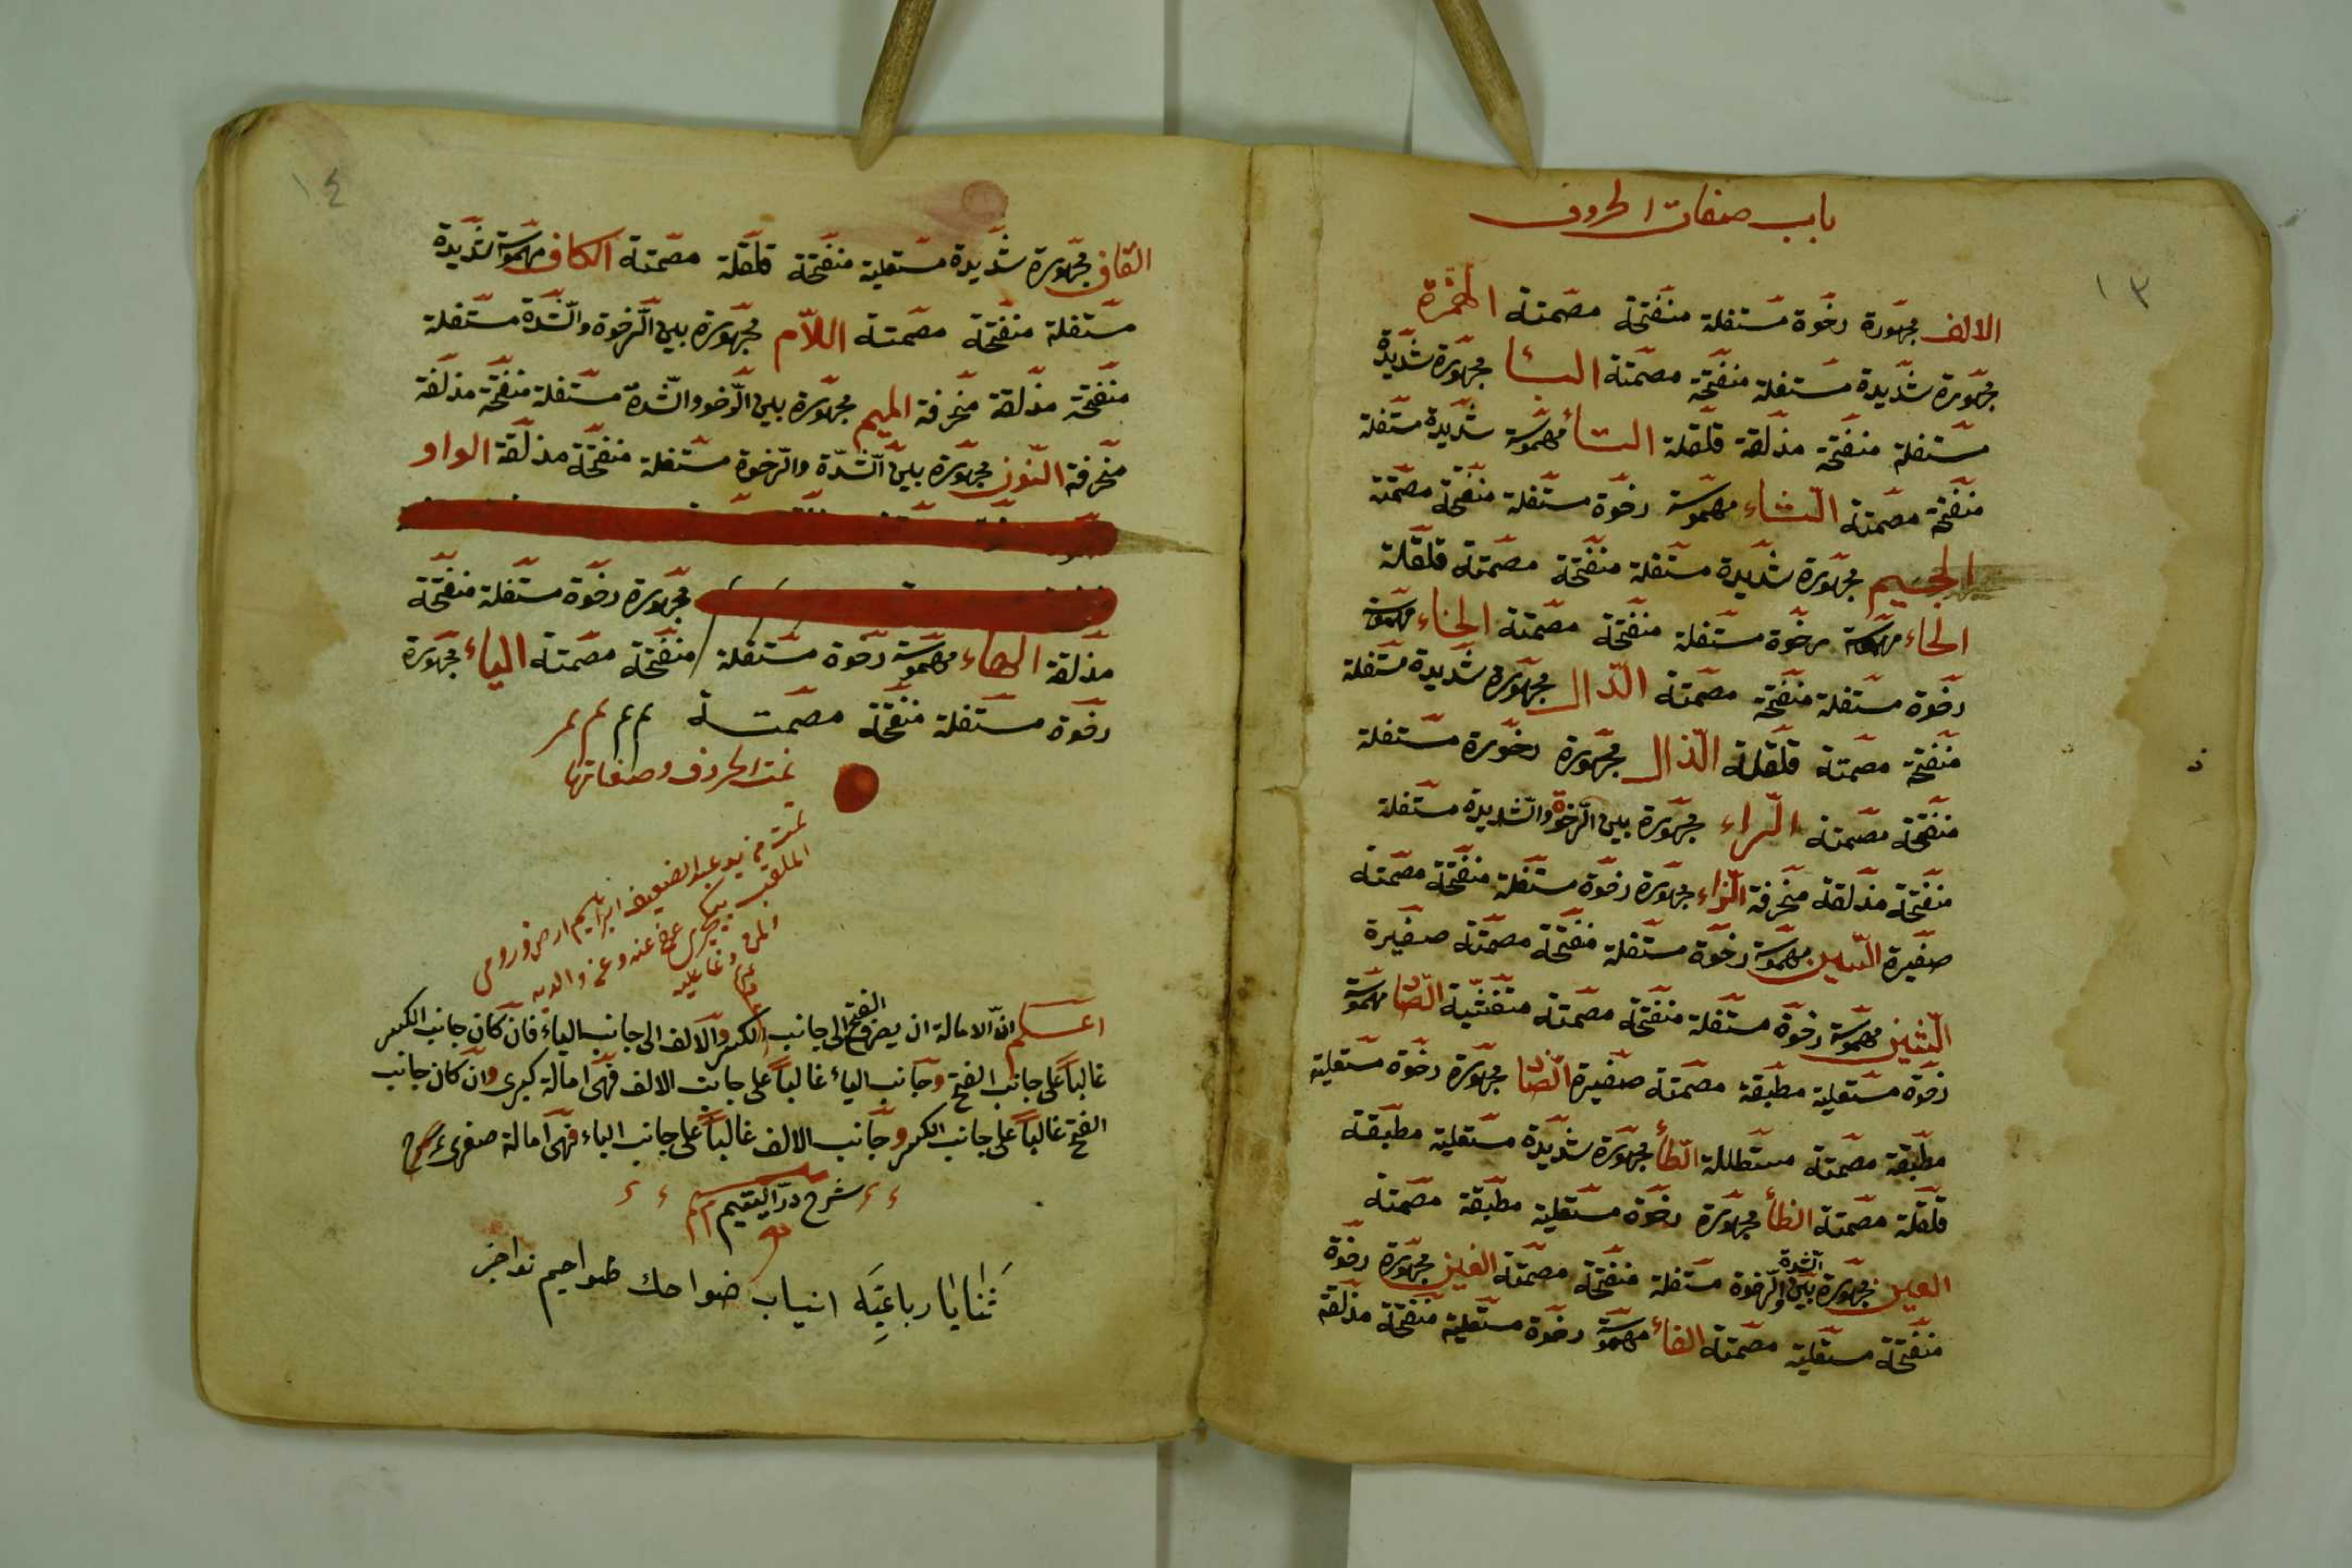 باب صفات الحروف
١٣
الالف مجهورة رخوة مستفلة منفتحة مصمتة الهمزة
مجهورة شديدة مستفلة منفتحة مصمتة البأ مجهورة شديدة
مستفلة منفتحة مذلقة قلقلة التأ مهموسة شديدة مستفلة
منفتحة مصمتة الثاء مهموسة رخوة مستفلة منفتحة مصمتة
الجيم مجهورة شديدة مستفلة منفتحة مصمتة قلقلة
الحاء مهموسة رخوة مستفلة منفتحة مصمتة الخاء مهموسة
رخوة مستفلة منفتحة مصمتة الدال مجهورة شديدة مستفلة
منفتحة مصمتة قلقلة الذال مجهورة رخورة مستفلة
منفتحة مصمتة الراء مجهورة بين الرخوة والشديدة مستفلة
منفتحة مذلقة منحرفة الزاء مجهورة رخوة مستفلة منفتحة مصمتة
صفيرة السين مهموسة رخوة مستفلة منفتحة مصمتة صفيرة
الشين مهموسة رخوة مستفلة منفتحة مصمتة متفشية الصاد مهموسة
رخوة مستعلية مطبقة مصمتة صفيرة الضاد مجهورة رخوة مستعلية
مطبقة مصمتة مستطللة الطأ مجهورة شديدة مستعلية مطبقة
قلقلة مصمتة الظأ مجهورة رخوة مستعلية مطبقة مصمتة
العين مجهورة بين الشدة والرخوة مستفلة منفتحة مصمتة الغين مجهورة رخوة
منفتحة مستعلية مصمتة الفأ مهموسة رخوة مستعلية منفتحة مذلقة
١٤
القاف مجهورة شديدة مستعلية منفتحة قلقلة مصمتة الكاف مهموسة شديدة
مستفلة منفتحة مصمتة اللام مجهورة بين الرخوة والشدة مستفلة
منفتحة مذلقة منحرفة الميم مجهورة بين الرخو والشدة مستفلة منفتحة مذلقة
منحرفة النون مجهورة بين الشدة والرخوة مستفلة منفتحة مذلقة الواو
مجهورة رخوة مستفلة منفتحة
مذلقة الهاء مهموسة رخوة مستفلة منفتحة مصمتة الياء مجهورة
رخوة مستفلة منفتحة مصمتة م م م م
تمت الحروف وصفاتها
تمت من يد عبد الضعيف ابراهيم ارضرومى
الملقب عفى عنه وعن والديه
اعلم ان الامالة ان يضرع الفتح الى جانب الكسر والالف الى جانب الياء فان كان جانب الكسر
غالباً على جانب الفتح وجانب الياء غالباً على جانب الالف فهى امالة كبرى وان كان جانب
الفتح غالباً على جانب الكسر وجانب الالف غالباً على جانب الياء فهى امالة صغرى
شرح در اليتيم
ثنايا رباعية انياب ضواحك طواحيم نواجز